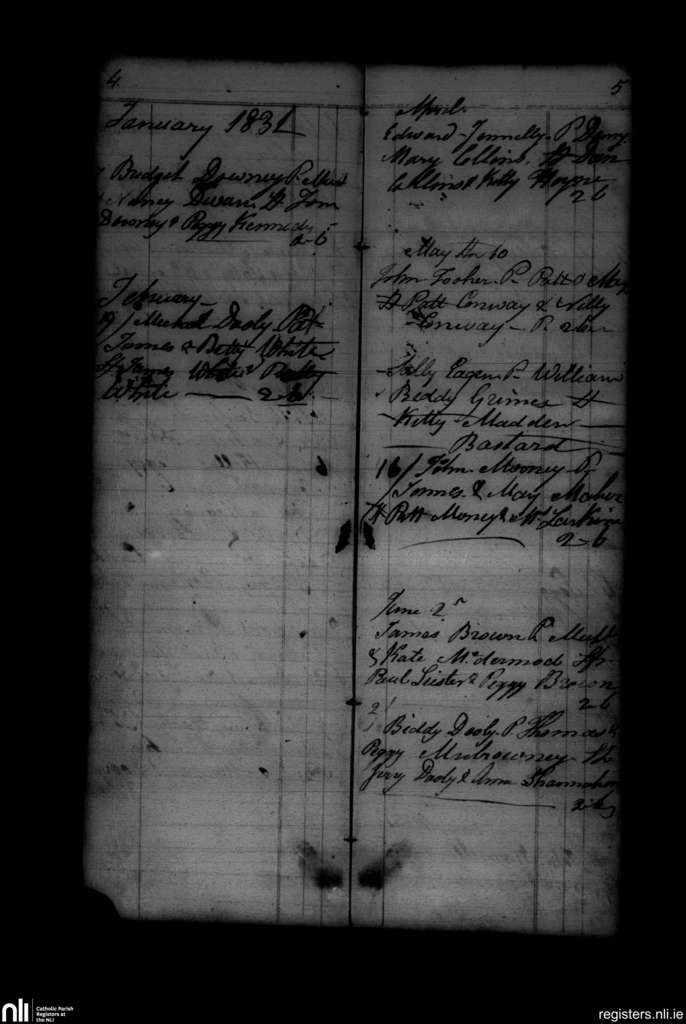 4
January 1831
Bridget Downey P. Mich
Nancy Dwan St Tom
Downey & Peggy Kennedy
2-6
February
19/ Micheal Dooly Pat
James & Betty White
St James White & Patty
White 2-6
5
April
Edward Fennelly P Denny
Mary Collins St Dan
Collins & Kitty Hogan
2 6
May 10
John P. Patt & May
St Patt Conway & Nelly
Conway P.
Sally Eagen P William
Biddy Grimes St
Kitty Madden
Bastard
16/ John Mooney P
James & May Maher
St Patt Mooney & Mt Larkin
2-6
June 2
James Brown P
& Kate McDermod St
Paul Lister & Peggy Brown
2-6
2/
Biddy Dooly P Thomas &
Peggy Mulrowney St
Jerry Dooly & Ann Shannahan
2-6
nli
Catholic Parish
Registers at
the NLI
registers.nli.ie